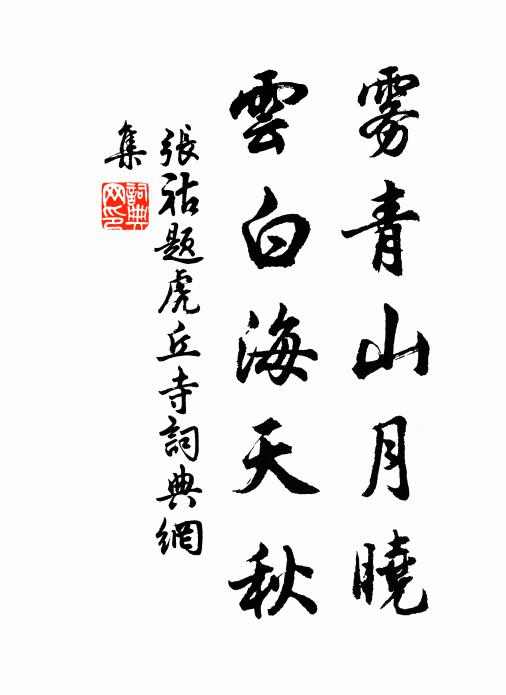 雾青山月曉
雲白海天秋
張祜题虎丘寺詞典網
集
詞典网印